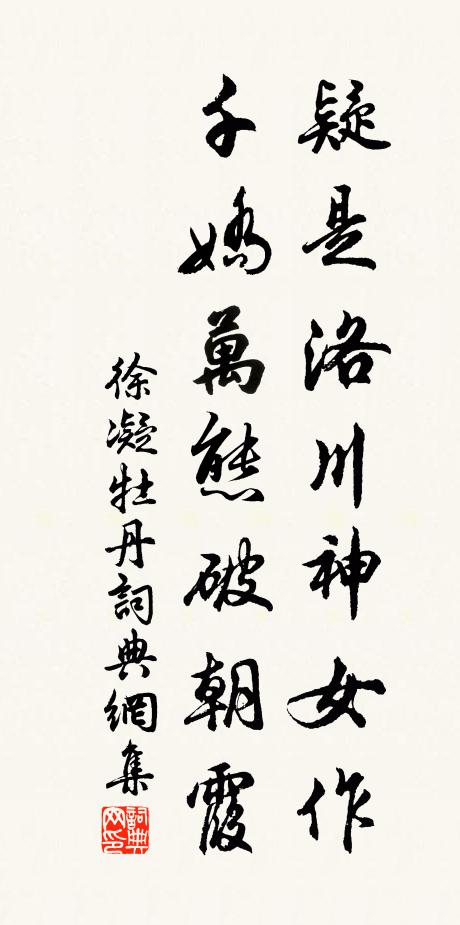 疑是洛川神女作
千嬌萬態破朝霞
徐凝牡丹詞典網集
詞典网印